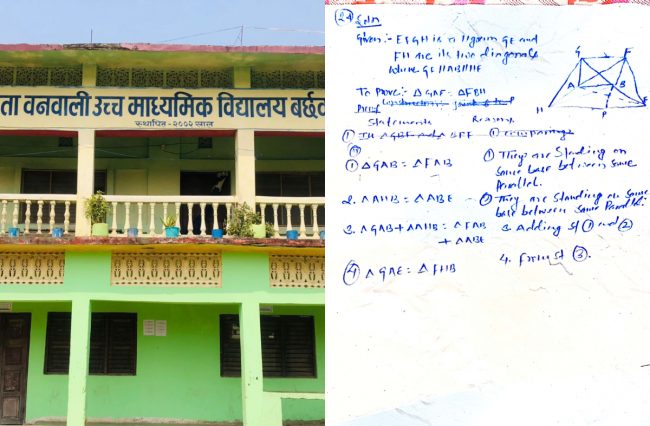 ता वनवाली उच्च माध्यमिक विद्यालय बर्छव
स्थापित - २००२ साल
24) Soln
Given :- EFGH is a llgram GE and
FH are its two diagonals
where GF||AB||HE
To Prove :- ΔGAE = ΔFBH
Proof
Statements Reasons
① ΔGAB = ΔFAB ① They are standing on same base between same Parallel.
2. ΔAHB = ΔABE ② They are standing on same base between same Parallel.
3. ΔGAB + ΔAHB = ΔFAB + ΔABE 3. Adding st ① and ②
④ ΔGAE = ΔFHB 4. from st ③.
G F
A B
H P E